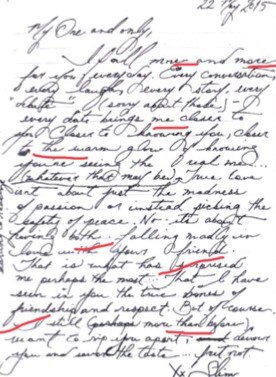 22 May 2015
My One and only,
I fall more and more
for you everyday. Every conversation,
every laugh, every story, every
"debate" (I sorry about those) - I
every date brings me closer to
you. Closer to knowing you, closer
to the warm glow of knowing
you're seeing the real me...
Whatever that may be. True love
isn't about just the madness
of passion or instead picking the
safety of peace. No - its about
having both. Falling madly in
love with your friend.
That is what has surprised
me perhaps the most. That I have
seen in you the true bones of
friendship and respect. But of course
I still (perhaps more than before)
want to rip you apart, devour
you and the taste... fret not
xx Slim